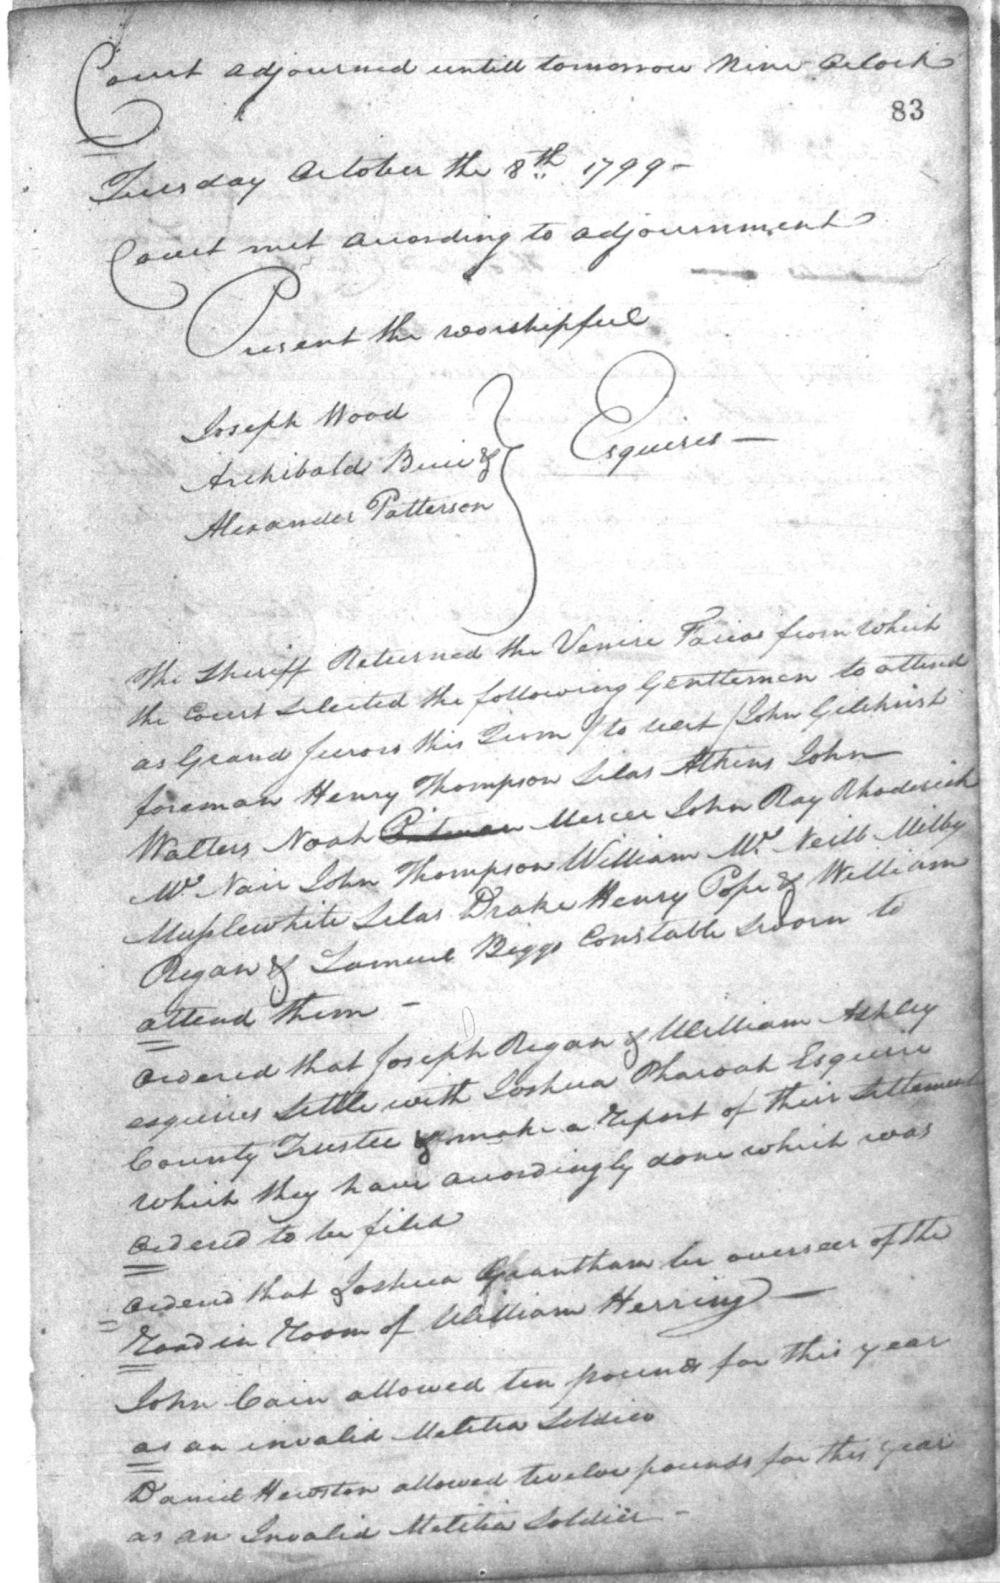 Court adjourned untill tomorrow Nine oClock
83
Tuesday October the 8th 1799 -
Court met according to adjournment
Present the worshipfull
Joseph Wood
Archibald Buie &
Alexander Patterson
Esquires -
The Sheriff Returned the Venire Facias from which
the Court Selected the following Gentlemen to attend
as Grand Jurors this Term (to wit) John Gilchrist
foreman Henry Thompson Silas Atkins John
Walters Noah Pitman Mercer John Ray Rhoderick
Mc. Nair John Thompson William Mc. Neill Milby
Musslewhite Silas Drake Henry Pope & William
Regan & Samuel Biggs Constable Sworn to
attend them -
Ordered that Joseph Regan & William Ashley
esquires Settle with Joshua Pharoah Esquire
County Trustee & make a report of their Settlement
which they have accordingly done which was
ordered to be filed
Orderd that Joshua Grantham be overseer of the
road in room of William Herring -
John Cain allowed ten pounds for this year
as an invalid Melitia Soldier
Daniel Hewston allowed twelve pounds for this year
as an Invalid Melitia Soldier -